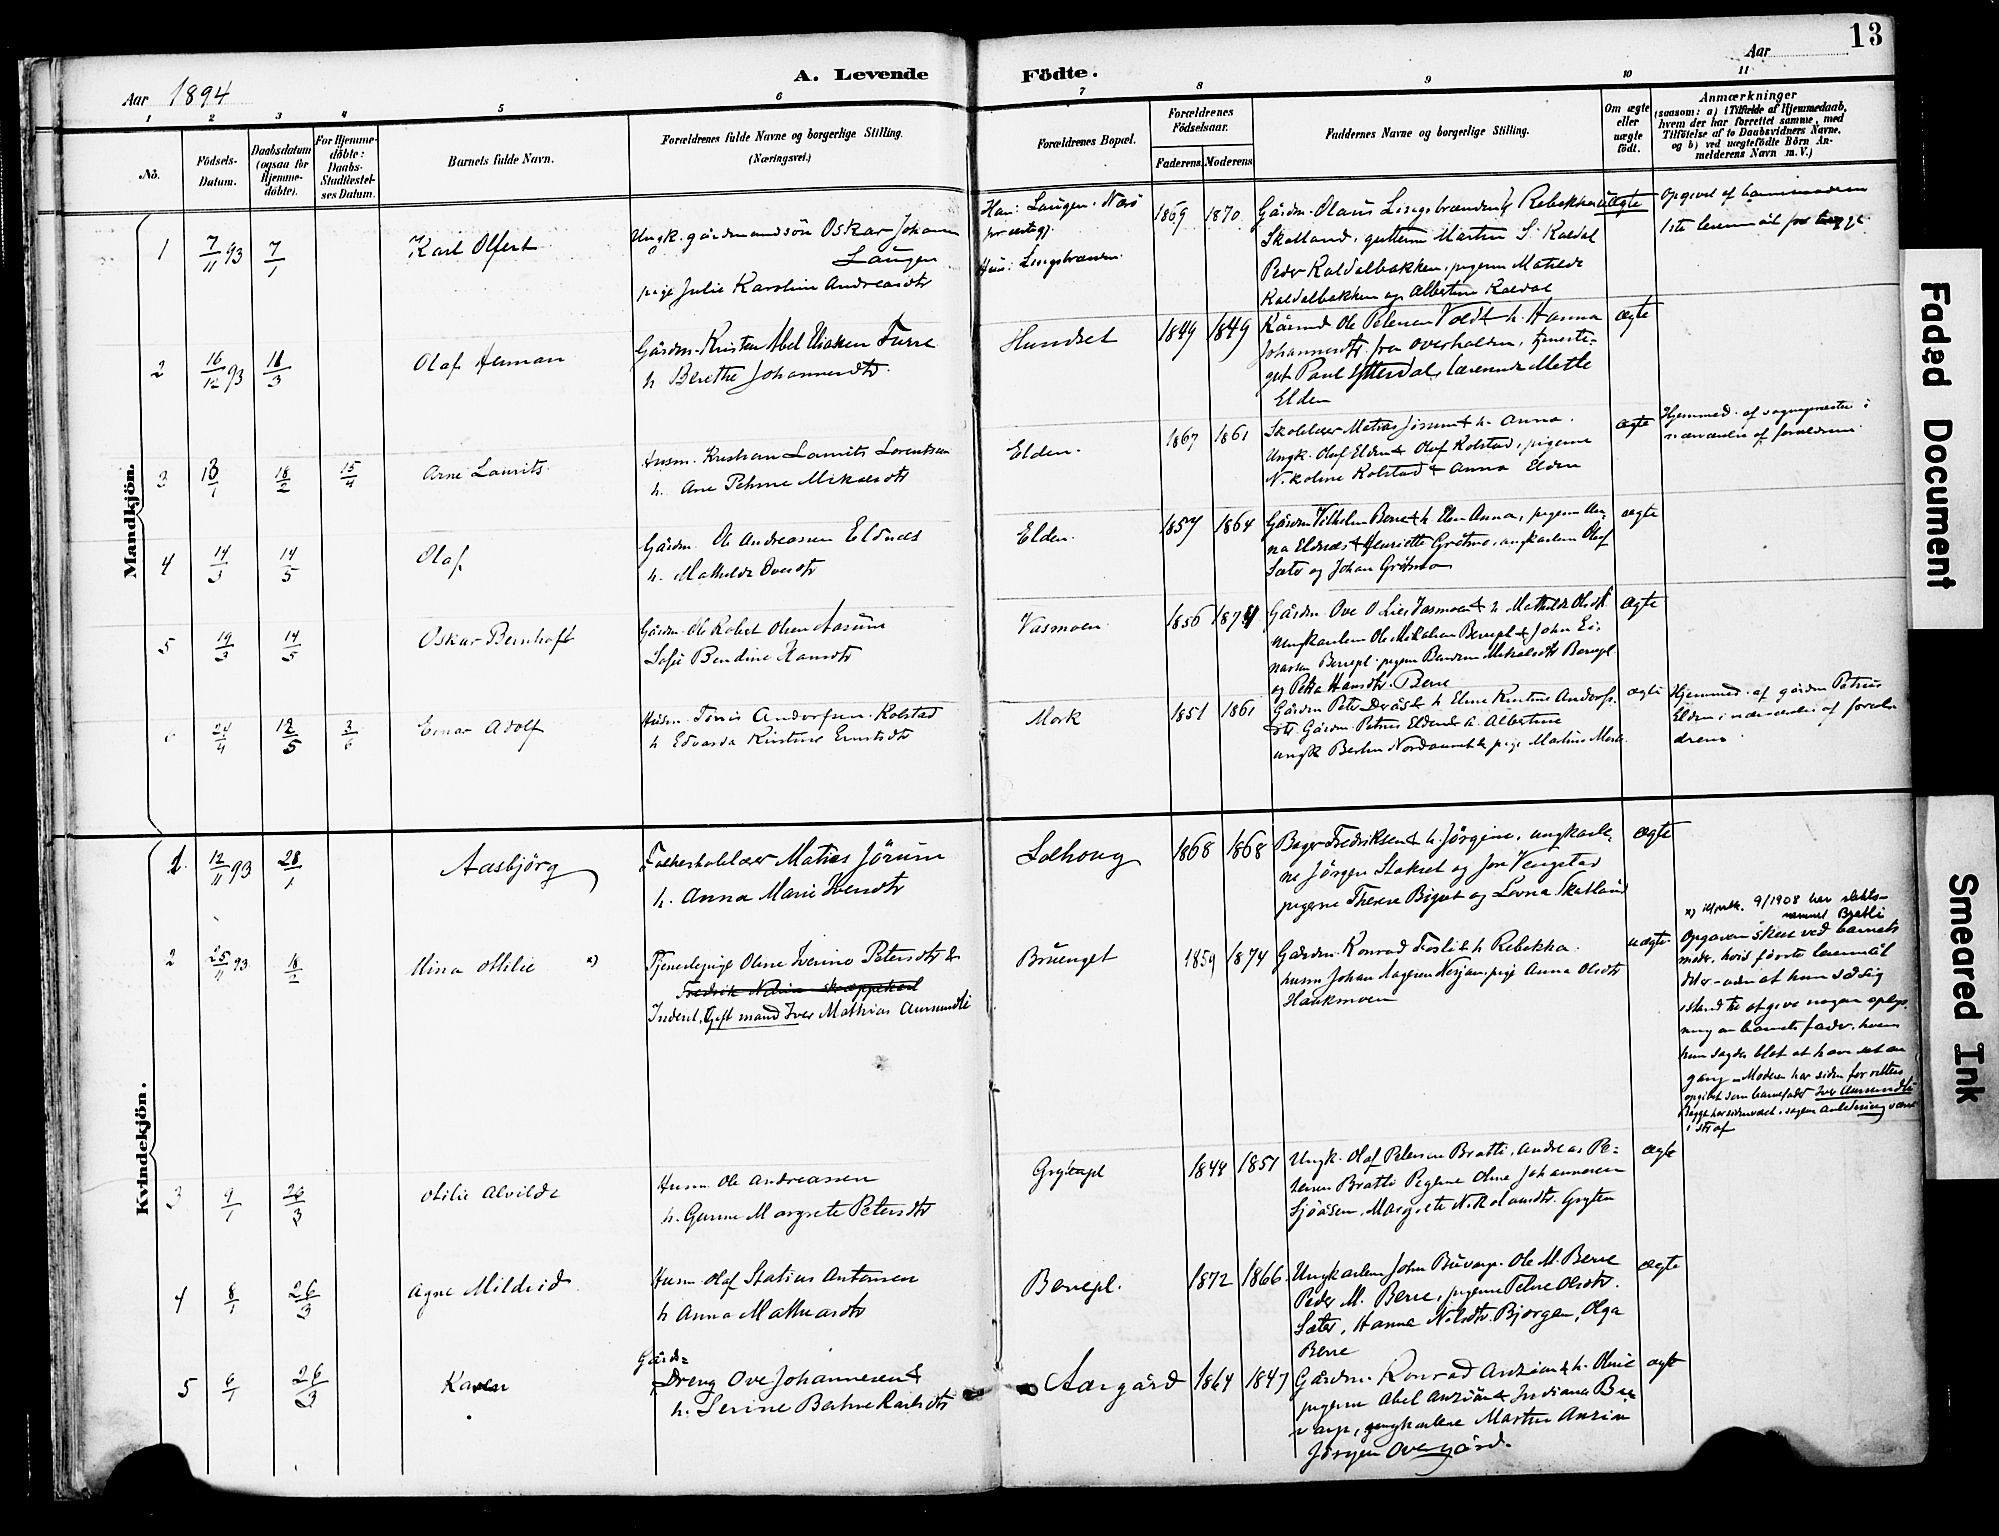 13
Aar 1894
A. Levende Födte.
Aar
1 2 3 4 5 6 7 8 9 10 11
No.
Födsels-Datum.
Daabsdatum (ogsaa for Hjemme-döbte).
For Hjemme-döbte: Daabs-Stadfæstel-ses Datum.
Barnets fulde Navn.
Forældrenes fulde Navne og borgerlige Stilling.
(Næringsvei.)
Forældrenes Bopæl.
Forældrenes Födselsaar.
Faderens. Moderens
Faddernes Navne og borgerlige Stilling.
Om ægte eller uægte födt.
Anmærkninger
(saasom: a) i Tilfælde af Hjemmedaab,
hvem der har forrettet samme, med
Tilföielse af to Daabsvidners Navne,
og b) ved uægtefödte Börn An-
melderens Navn m. V.)
Mandkjön.
1 7/11 93 7/1 Karl Olfert
Ungk. gårdmandsön Oskar Johan
Laugen
pige Julie Karoline Andreasdtr
Han: Laugen
Hun: Lingsbranden
1869 1870
Gårdm. Olaus Lingsbranden & Rebekka
Skatland, guttene Martin S. Kaldal
Peder Kaldalbakken, pigerne Matilde
Kaldalbakken og Albertine Kaldal
uægte
Opgivet af barnemoderen
1ste leiermål for begge
2 16/12 93 18/3 Olaf Herman
Gårdm. Kristen Abel Furre
h. Berethe Johannesdtr.
Hundset
1849 1849
Kårmd Ole Petersen Voldt h. Hanna
Johannesdtr. fra Overhalden, tjeneste-
gut Paul Ytterdal, Mette
Elden
ægte
3 13/1 18/2 15/4 Arne Laurits
Husm. Kristian Laurits Lorentsen
h. Ane Petrine Mikalsdtr
Elden.
1867 1861
Skolelærer Matias Jörum & h. Anna.
Ungk. Olaf Elden & Olaf Kolstad, pigerne
Nikoline Kolstad & Anna Elden
ægte
Hjemmed. af sognepræsten i
nærværelse af forældrene
4 14/3 14/5 Olaf
Gårdm. Ole Andreassen Eldnæs
h. Mathilde Ovesdtr
Elden.
1857 1864
Gårdm Vilhelm Berre & h. Elen Anna, pigerne An-
na Eldnæs & Henriette , ungkarlene Oluf
Sæter og Johan
ægte
5 19/3 14/5 Oskar Bernhoft
Gårdm. Ole Robert Olsen Aasum
Sofie Bendine Hansdtr
Vasmoen
1856 1871
Gårdm. Ove O Lies Vasmoen & h. Mathilde Olsdtr
ungkarlene Ole Mikalsen Berrepl. & John Ei-
narsen Berrepl. pigerne Mikalsdtr Berrepl.
og Petra Hansdtr. Berre
ægte
24/4 12/5 3/6 Einar Adolf
Husm. Tönis Andorfsen Kolstad
h. Edvarda Kristine Ernstsdtr
Mork
1851 1861
Gårdm Peter & h. Eline Kristine Andorfs-
dtr. Gårdm. Petrus Elden & h. Albertine
ungk. Berten Nordaunet & pige Matina Mork
ægte
Hjemmed. af gårdm Petrus
Elden i nærværelse af foræl-
drene.
Kvindekjön.
1. 12/11 93 28/1 Aasbjörg
Folkeskolelærer Matias Jörum
h. Anna Marie Iversdtr
Solhoug
1868 1868
Bager Fredriksen & h. Jörgine, ungkarle-
ne Jörgen Staksel og Jon Vengstad
pigerne Therese Bigset og Lovna Skatland
ægte
2 25/11 93 18/2 Mina Othilie x)
Tjenestepige Oline Iverine Petersdtr &
Inderst, Gift mand Iver Mathias Aunsundli
Bruenget
1859 1874
Gårdm. Konrad Fosli & h. Rebekka.
husm Johan Aageson , pige Anna Olsdtr
Haukmoen
uægte
x) 9/1908 har slægts-
navnet Bratli
Opgaven skeet ved barnets
moder, hvis förste leiermål
det er – uden at hun så sig
istand til at give nogen oplys-
ning om barnets fader, hvem
hun sagde blot at have set en
gang – Moderen har siden for retten
opgivet som barnefader Iver Aunsundli
i straf
3 9/1 26/3 Otilie Alvilde
Husm Ole Andreassen
h. Gurine Margrete Petersdtr
1848 1851
Ungk. Olaf Petersen Bratli, Andreas Pe-
tersen Bratli Pigerne Oline Johannesen
Sjöåsen, Margrete Nikolausdtr. Gryten
ægte
4 8/1 26/3 Agne Mildrid
Husm Olaf Statius Antonsen
h. Anna Mathiasdtr
Berrepl.
1872 1866
Ungkarlene John Buvarp. Ole M. Berre
Peder M. Berre, pigerne Petrine Olsdtr.
Sæter, Hanna Nilsdtr. Bjorgan, Olga
Berre
ægte
5 6/1 26/3 Karen
Gårdm=
Dreng Ove Johannesen &
h. Serine Berthine Karlsdtr
Aargård
1864 1847
Gårdm. Konrad Anzion & h. Oline
pigerne Abel Anziön & Indiana Bu-
varp, ungkarlene Martin Anzion
Jörgen Overgård.
ægte
Faded Document
Smeared Ink